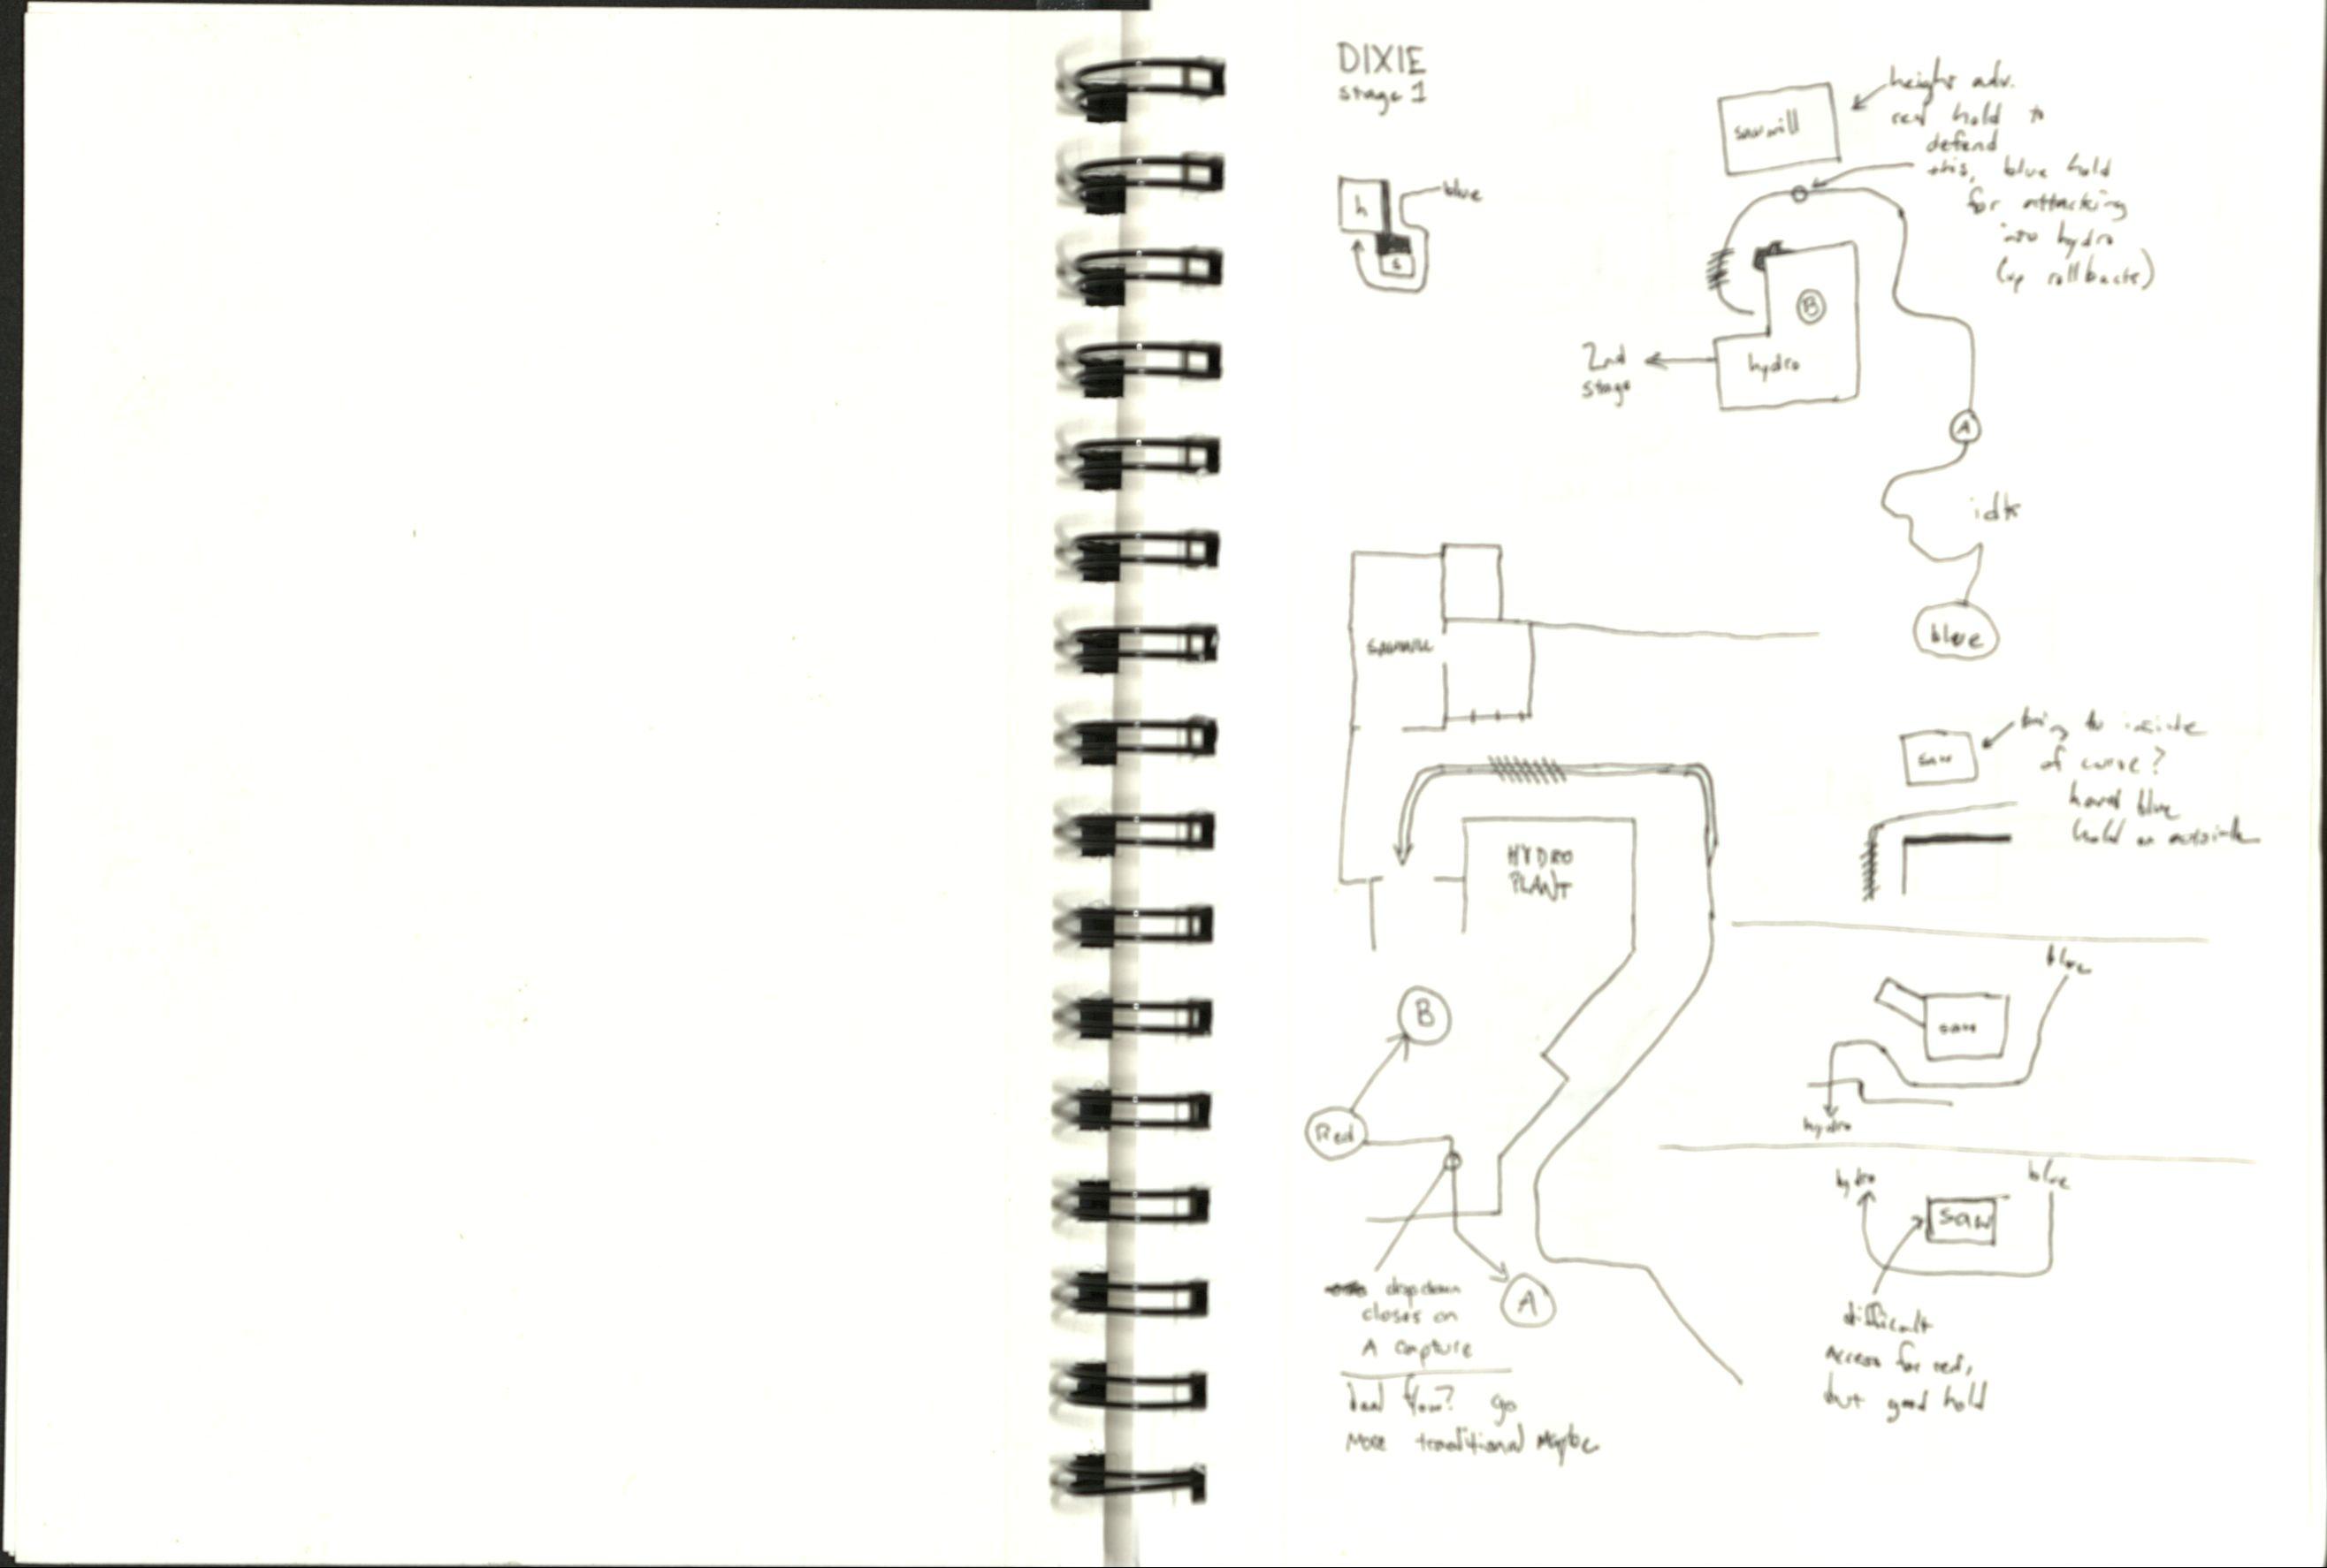 DIXIE
stage 1
sawmill
height adv.
red hold to
defend
this, blue hold
for attacking
into hydro
(up rollbacks)
h
blue
s
B
hydro
2nd
stage
A
idk
blue
SAWMILL
HYDRO
PLANT
saw
bring to inside
of curve?
hard blue
hold on outside
blue
saw
hydro
B
Red
A
dropdown
closes on
A capture
flow? go
more traditional maybe
hydro
blue
saw
difficult
access for red,
but good hold